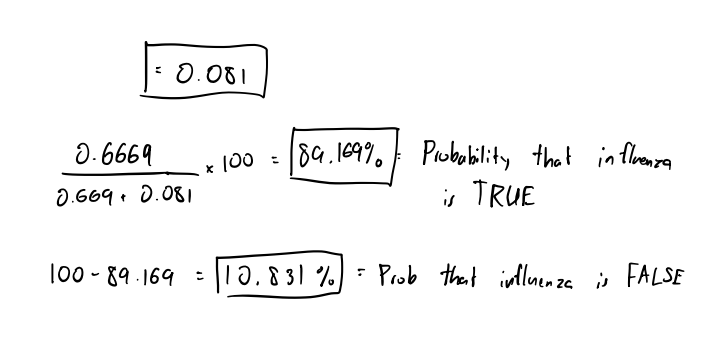 = 0.081
0.6669 / 0.669 + 0.081 × 100 = 89.169% = Probability that influenza
is TRUE
100 - 89.169 = 10.831 % = Prob that influenza is FALSE